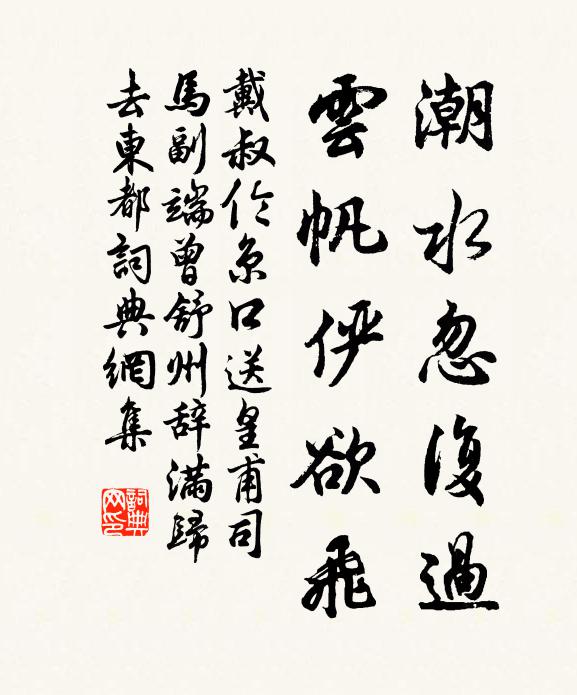 潮水忽復過
雲帆俨欲飛
戴叔伦京口送皇甫司
馬副端曾舒州辞滿歸
去東都詞典網集
詞典網印